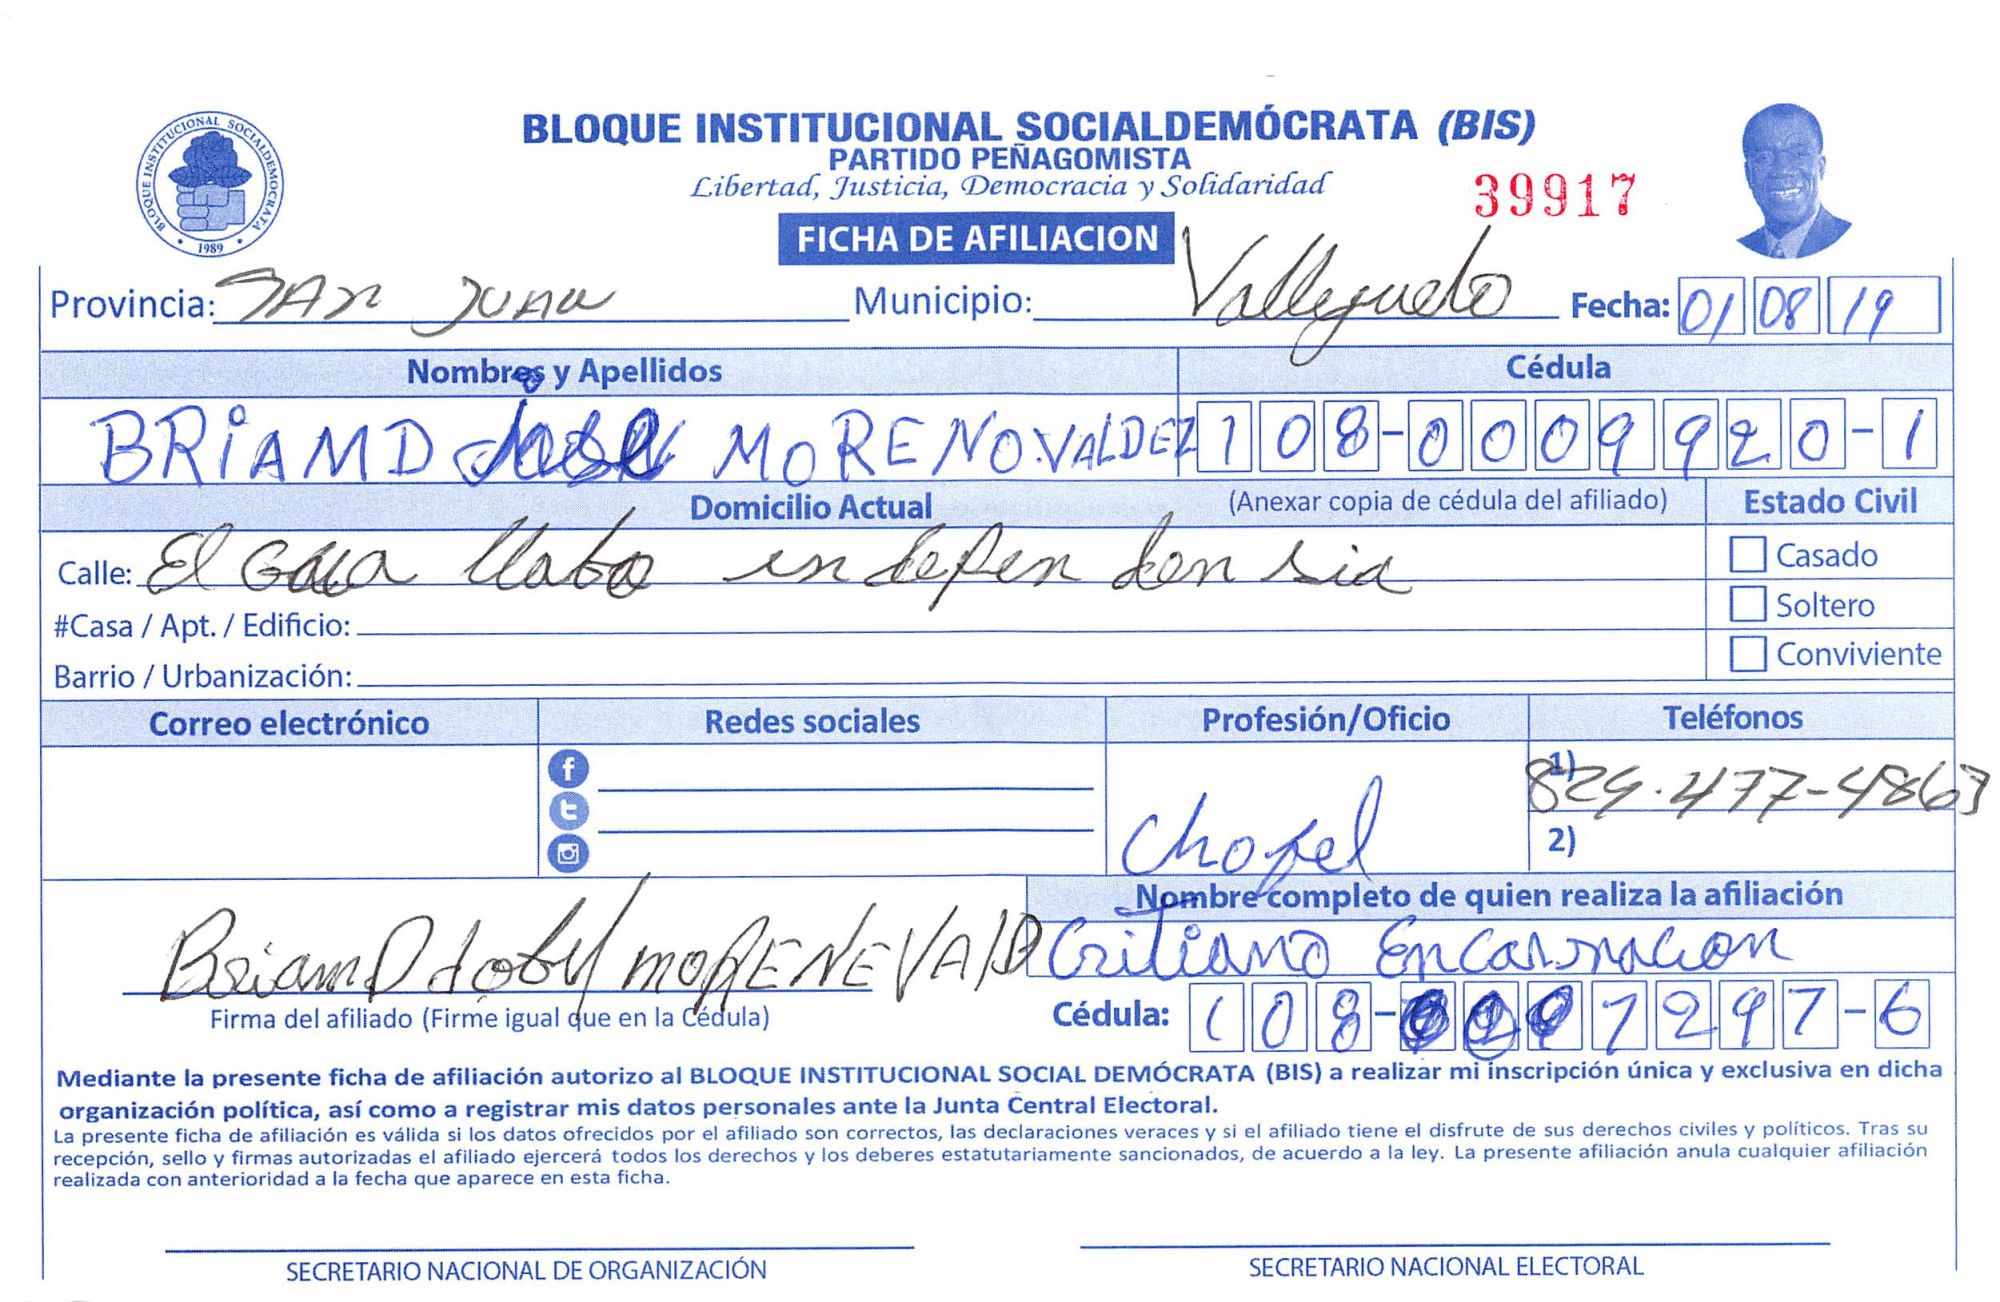 BLOQUE INSTITUCIONAL SOCIALDEMÓCRATA (BIS)
PARTIDO PEÑAGOMISTA
Libertad, Justicia, Democracia y Solidaridad
39917
BLOQUE INSTITUCIONAL SOCIALDEMOCRATA
1989
FICHA DE AFILIACION
Provincia: SAN JUAN Municipio: Vallejuelo Fecha: 01 08 19
Nombres y Apellidos Cédula
BRIAMD MORENO VALDEZ 108-0009920-1
Domicilio Actual (Anexar copia de cédula del afiliado) Estado Civil
Calle: El independensia
Casado
#Casa / Apt. / Edificio:
Soltero
Barrio / Urbanización:
Conviviente
Correo electrónico Redes sociales Profesión/Oficio Teléfonos
1) 829-477-4863
Chofel
2)
Nombre completo de quien realiza la afiliación
Critiano Encarnacion
BriamD
Firma del afiliado (Firme igual que en la Cédula)
Cédula: 108- 7297-6
Mediante la presente ficha de afiliación autorizo al BLOQUE INSTITUCIONAL SOCIAL DEMÓCRATA (BIS) a realizar mi inscripción única y exclusiva en dicha
organización política, así como a registrar mis datos personales ante la Junta Central Electoral.
La presente ficha de afiliación es válida si los datos ofrecidos por el afiliado son correctos, las declaraciones veraces y si el afiliado tiene el disfrute de sus derechos civiles y políticos. Tras su
recepción, sello y firmas autorizadas el afiliado ejercerá todos los derechos y los deberes estatutariamente sancionados, de acuerdo a la ley. La presente afiliación anula cualquier afiliación
realizada con anterioridad a la fecha que aparece en esta ficha.
SECRETARIO NACIONAL DE ORGANIZACIÓN
SECRETARIO NACIONAL ELECTORAL